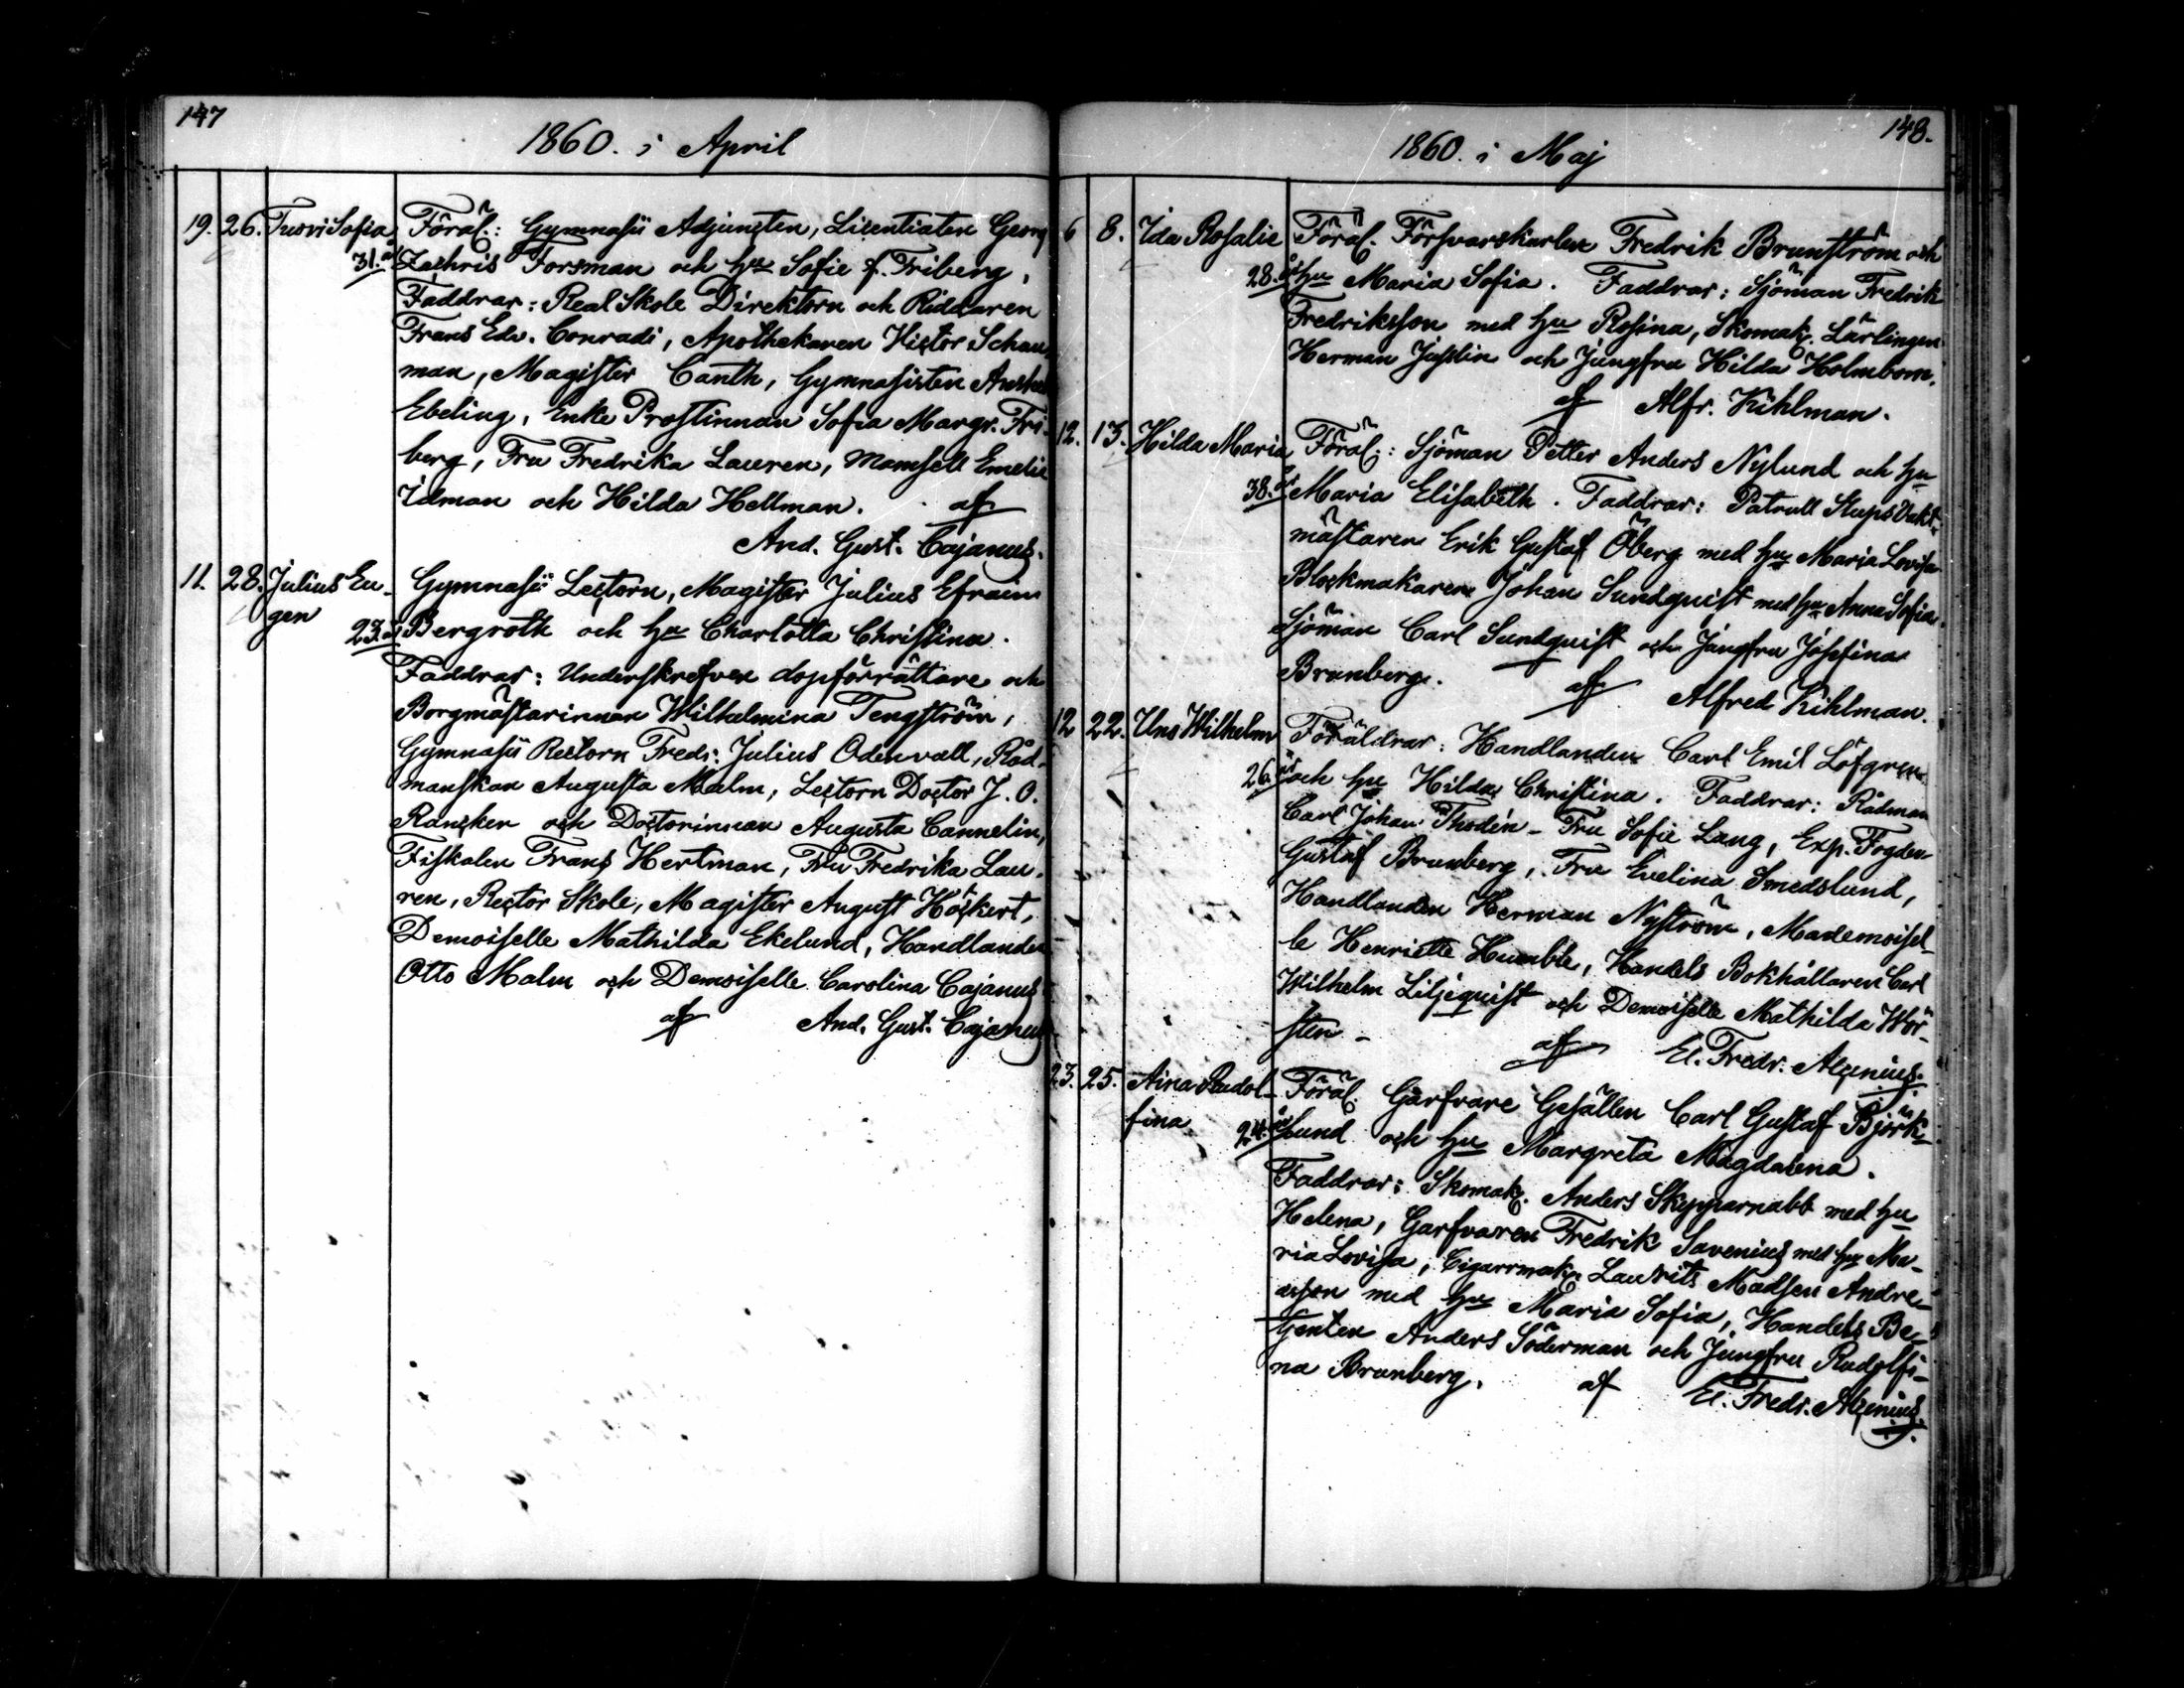 147
1860. i April
19. 26. Tuovi Sofia Föräl.: Gymnasii Adjuncten, Licentiaten Georg
31. år Zachris Forsman och hu Sofie f. Friberg,
Faddrar: Real Skole Direktorn och Riddaren
Frans Edv. Conradi, Apothekaren Victor Schau
man, Magister Canth, Gymnasisten
Ebeling, Enke Prostinnan Sofia Margr. Fri-
berg, Fru Fredrika Lauren, Mamsell Emelie
Idman och Hilda Hellman. af
And. Gust. Cajanus.
11. 28. Julius Eu- Gymnasii Lectorn, Magister Julius Efraim
gen 23. år Bergroth och hu Charlotta Christina.
Faddrar: Underskrefven dopförrättare och
Borgmästarinnan Wilhelmina Tengström,
Gymnasii Rectorn Fredr. Julius Odenvall, Råd-
manskan Augusta Malm, Lectorn Doctor J. O.
Rancken och Doctorinnan Augusta Cannelin,
Fiskalen Frans Hertman, Fru Fredrika Lau-
ren, Rector Skole, Magister August Höckert,
Demoiselle Mathilda Ekelund, Handlanden
Otto Malm och Demoiselle Carolina Cajanus
af And. Gust. Cajanus
148.
1860. i Maj
6 8. Ida Rosalie Föräl. Försvarskarlen Fredrik Brunström och
28. år hu Maria Sofia. Faddrar: Sjöman Fredrik
Fredriksson med hu Rosina, Skomak. Lärlingen
Herman Juslin och Jungfru Hilda Holmbom.
af Alfr. Kihlman.
12. 13. Hilda Maria Föräl.: Sjöman Petter Anders Nylund och hu
38. år Maria Elisabeth. Faddrar: Patrull Slups Vakt-
mästaren Erik Gustaf Öberg med hu Maria Lovisa
Blockmakaren Johan Sundquist med hu Anna Sofia.
Sjöman Carl Sundquist och Jungfru Josefina
Brunberg. af Alfred Kihlman.
12 22. Uno Wilhelm Föräldrar: Handlanden Carl Emil Löfgren
26. år och hu Hilda Christina. Faddrar: Rådman
Carl Johan Thodén - Fru Sofie Lang, Exp. Fogden
Gustaf Brunberg, Fru Evelina Smedslund,
Handlanden Herman Nyström, Mademoisel-
le Henriette Humble, Handels Bokhållaren Carl
Wilhelm Liljequist och Demoiselle Mathilda Wör-
sten - af El. Fredr. Alcenius.
23. 25. Aina Rudol- Föräl. Garfvare Gesällen Carl Gustaf Björk-
fina 24. år lund och hu Margreta Magdalena.
Faddrar: Skomak. Anders Skepparnabb med hu
Helena, Garfvaren Fredrik Savenius med hu Ma-
ria Lovisa, Cigarrmak. Laurits Madsen Andre-
assen med hu Maria Sofia, Handels Be-
tjenten Anders Söderman och Jungfru Rudolfi-
na Brunberg. af El. Fredr. Alcenius.